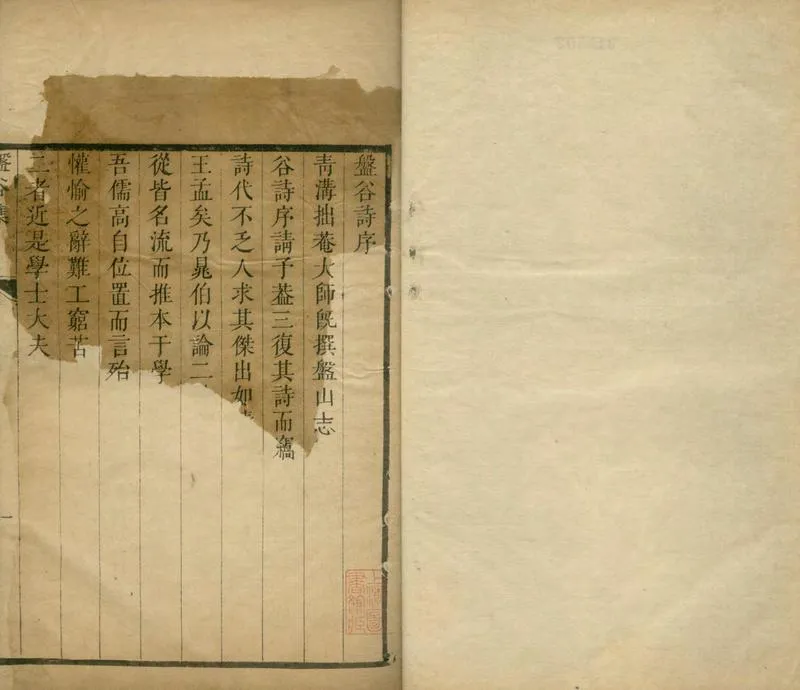 盤谷詩序
青溝拙菴大師旣撰盤山志
谷詩序請予葢三復其詩而竊
詩代不乏人求其傑出如
王孟矣乃晁伯以論二
從皆名流而推本于學
吾儒高自位置而言殆
懽愉之辭難工窮苦
二者近是學士大夫
盤谷集
一
上海圖書館藏